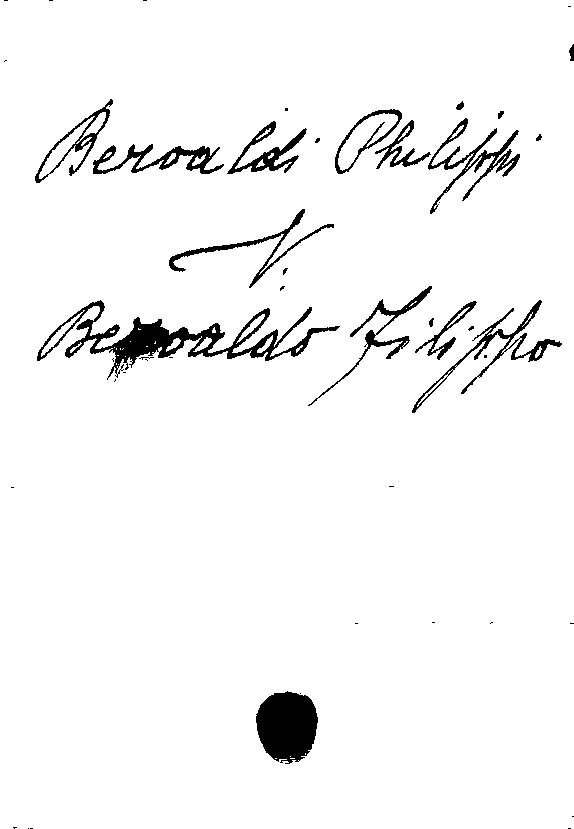 Beroaldi Philippi
V.
Beroaldo Filippo